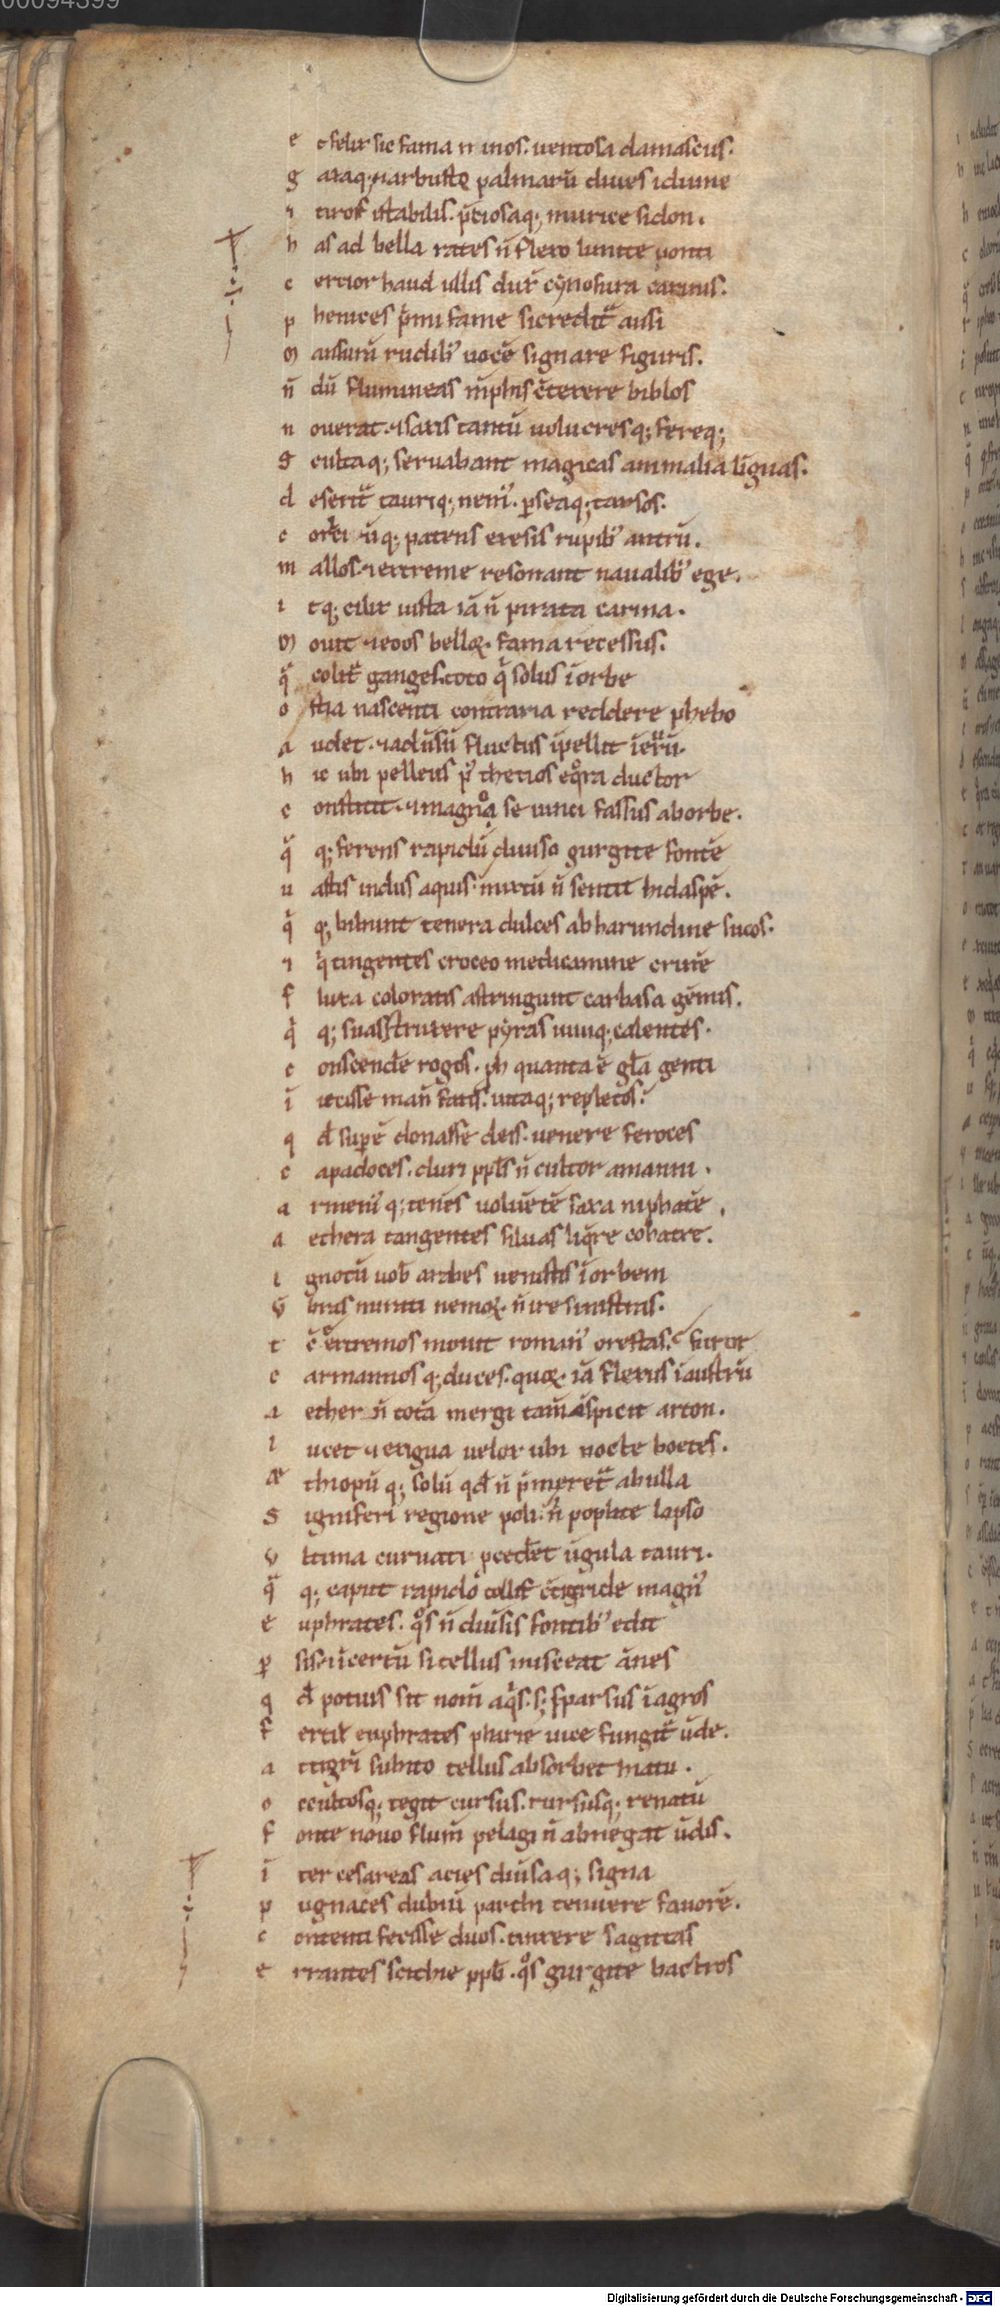 00094399
e t felix sic fama ñ inos. uentosa damascus.
g azaq; ⁊ arbusto palmarū diues idume
⁊ tiros īstabilis. p̄ciosaq; murice sidon.
h as ad bella rates ñ flexo limite ponti
c ertior haud ullis dux̄ cẏnosura carinis.
p henices p̄mi fame si creditᷣ ausi
m ansurā rudibꝰ uocē signare figuris.
ñ dū flumineas mēphis c̄texere biblos
n ouerat. ⁊ saxis tantū uolucresq; fereq;
s cultaq; seruabant magicas animalia līguas.
d eseritᷣ tauriq; nemꝰ. ꝑseaq; tarsos.
c oriciūq; patens exesis rupibꝰ antrū.
m allos. ⁊ extreme resonant naualibꝰ ege.
i tq; cilix iusta iā ñ pirata carina.
m ouit ⁊ eoos belloꝝ. fama recessus.
q̄ colitᷣ ganges. toto qͥ solus ī orbe
o stia nascenti contraria reddere phebo
a udet. ⁊ aduūsū fluctus īpellit ī eurū.
h ic ubi pelleus pꝰ thetios eqͦra ductor
c onstitit. ⁊ magnͦ se uinci fassus ab orbe.
q̄ q; ferens rapidū diuiso gurgite fontē
u astis indus aquis. mixtū ñ sentit hidaspē.
qͥ q; bibunt tenera dulces ab harundine sucos.
⁊ qͥ tingentes croceo medicamine crinē
f luxa coloratis astringunt carbasa gēmis.
qͥ q; suas struxere pẏras uiuiq; calentes.
c onscendē rogos. ꝓh quanta ē gl̄a genti
ī iecisse man̄ fatis. uitaq; repletos.
q d̄ supē donasse deis. uenere feroces
c apadoces. duri ppl̄s ñ cultor amanni.
a rmeniꝰ q; tenēs uoluētē saxa niphatē.
a ethera tangentes siluas liq̄re cohatre.
i gnotū uob̄ arabes uenistis ī orbem
ū bras mirati nemoꝝ. ñ ire sinistras.
t c̄ extremos mouit romanꝰ orestas. furor
c armannos q; duces. quoꝝ iā flexus ī austrū
a ether ñ totā mergi tam̄ aspicit arton.
l ucet ⁊ exigua uelox ubi nocte boetes.
æ thiopū q; solū qd̄ ñ p̄meretᷣ ab ulla
s igniferi regione poli. nͥ poplite lapso
u ltima curuati pcedet ūgula tauri.
q̄ q; caput rapido tollit c̄ tigride magnꝰ
e uphrates. qͦs ñ diuisis fontibꝰ edit
ꝑ sis ⁊ īcertū si tellus misceat ānes
q d̄ potuis sit nom̄ aqͥs. s; sparsus ī agros
f ertil̄ euphrates pharie uice fungitᷣ ūde.
a t tigrī subito tellus absorbet hiatu.
o ccultosq; tegit cursus. rursusq; renatū
f onte nouo flum̄ pelagi ñ abnegat ūdis.
ī ter cesareas acies diūsaq; signa
p ugnaces dubiū parthi tenuere fauorē.
c ontenti fecisse duos. tinxere sagittas
e rrantes scithie ppl̄. qͦs gurgite bactros
Digitalisierung gefördert durch die Deutsche Forschungsgemeinschaft - DFG